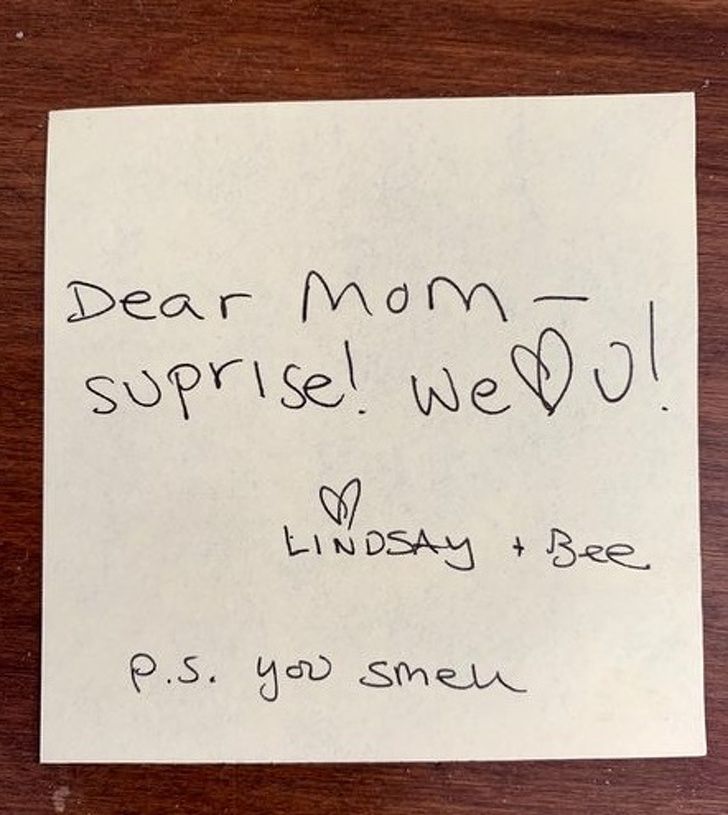 Dear Mom –
suprise! We ♡ U!
♡
LINDSAY + Bee
p.s. you smell